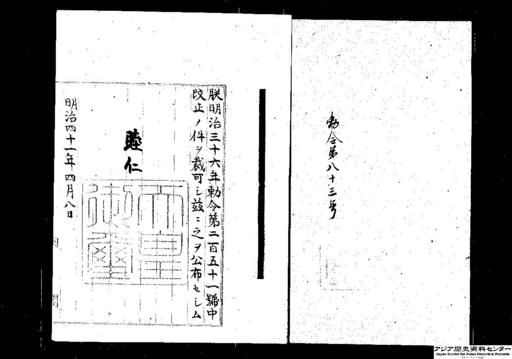 勅令第八十三号
朕明治三十六年勅令第二百五十一號中
改正ノ件ヲ裁可シ茲ニ之ヲ公布セシム
睦仁
天皇御璽
明治四十一年四月八日
内閣
アジア歴史資料センター
Japan Center for Asian Historical Records